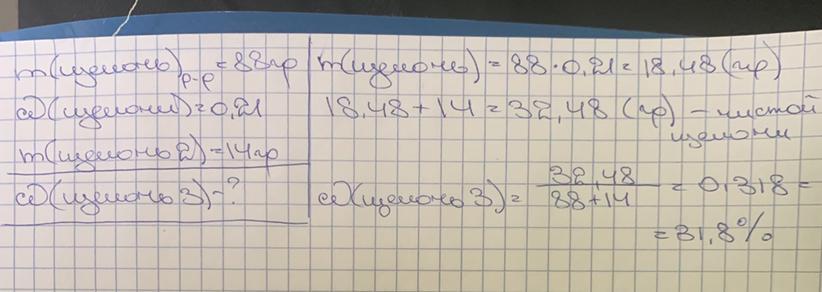 m(щелочь)р-р = 88гр
ω(щелочи) = 0,21
m(щелочь 2) = 14гр
ω(щелочь 3) - ?
m(щелочь) = 88 · 0,21 = 18,48 (гр)
18,48 + 14 = 32,48 (гр) - чистой
щелочи
ω(щелочь 3) = 32,48 / 88+14 = 0,318 =
= 31,8%